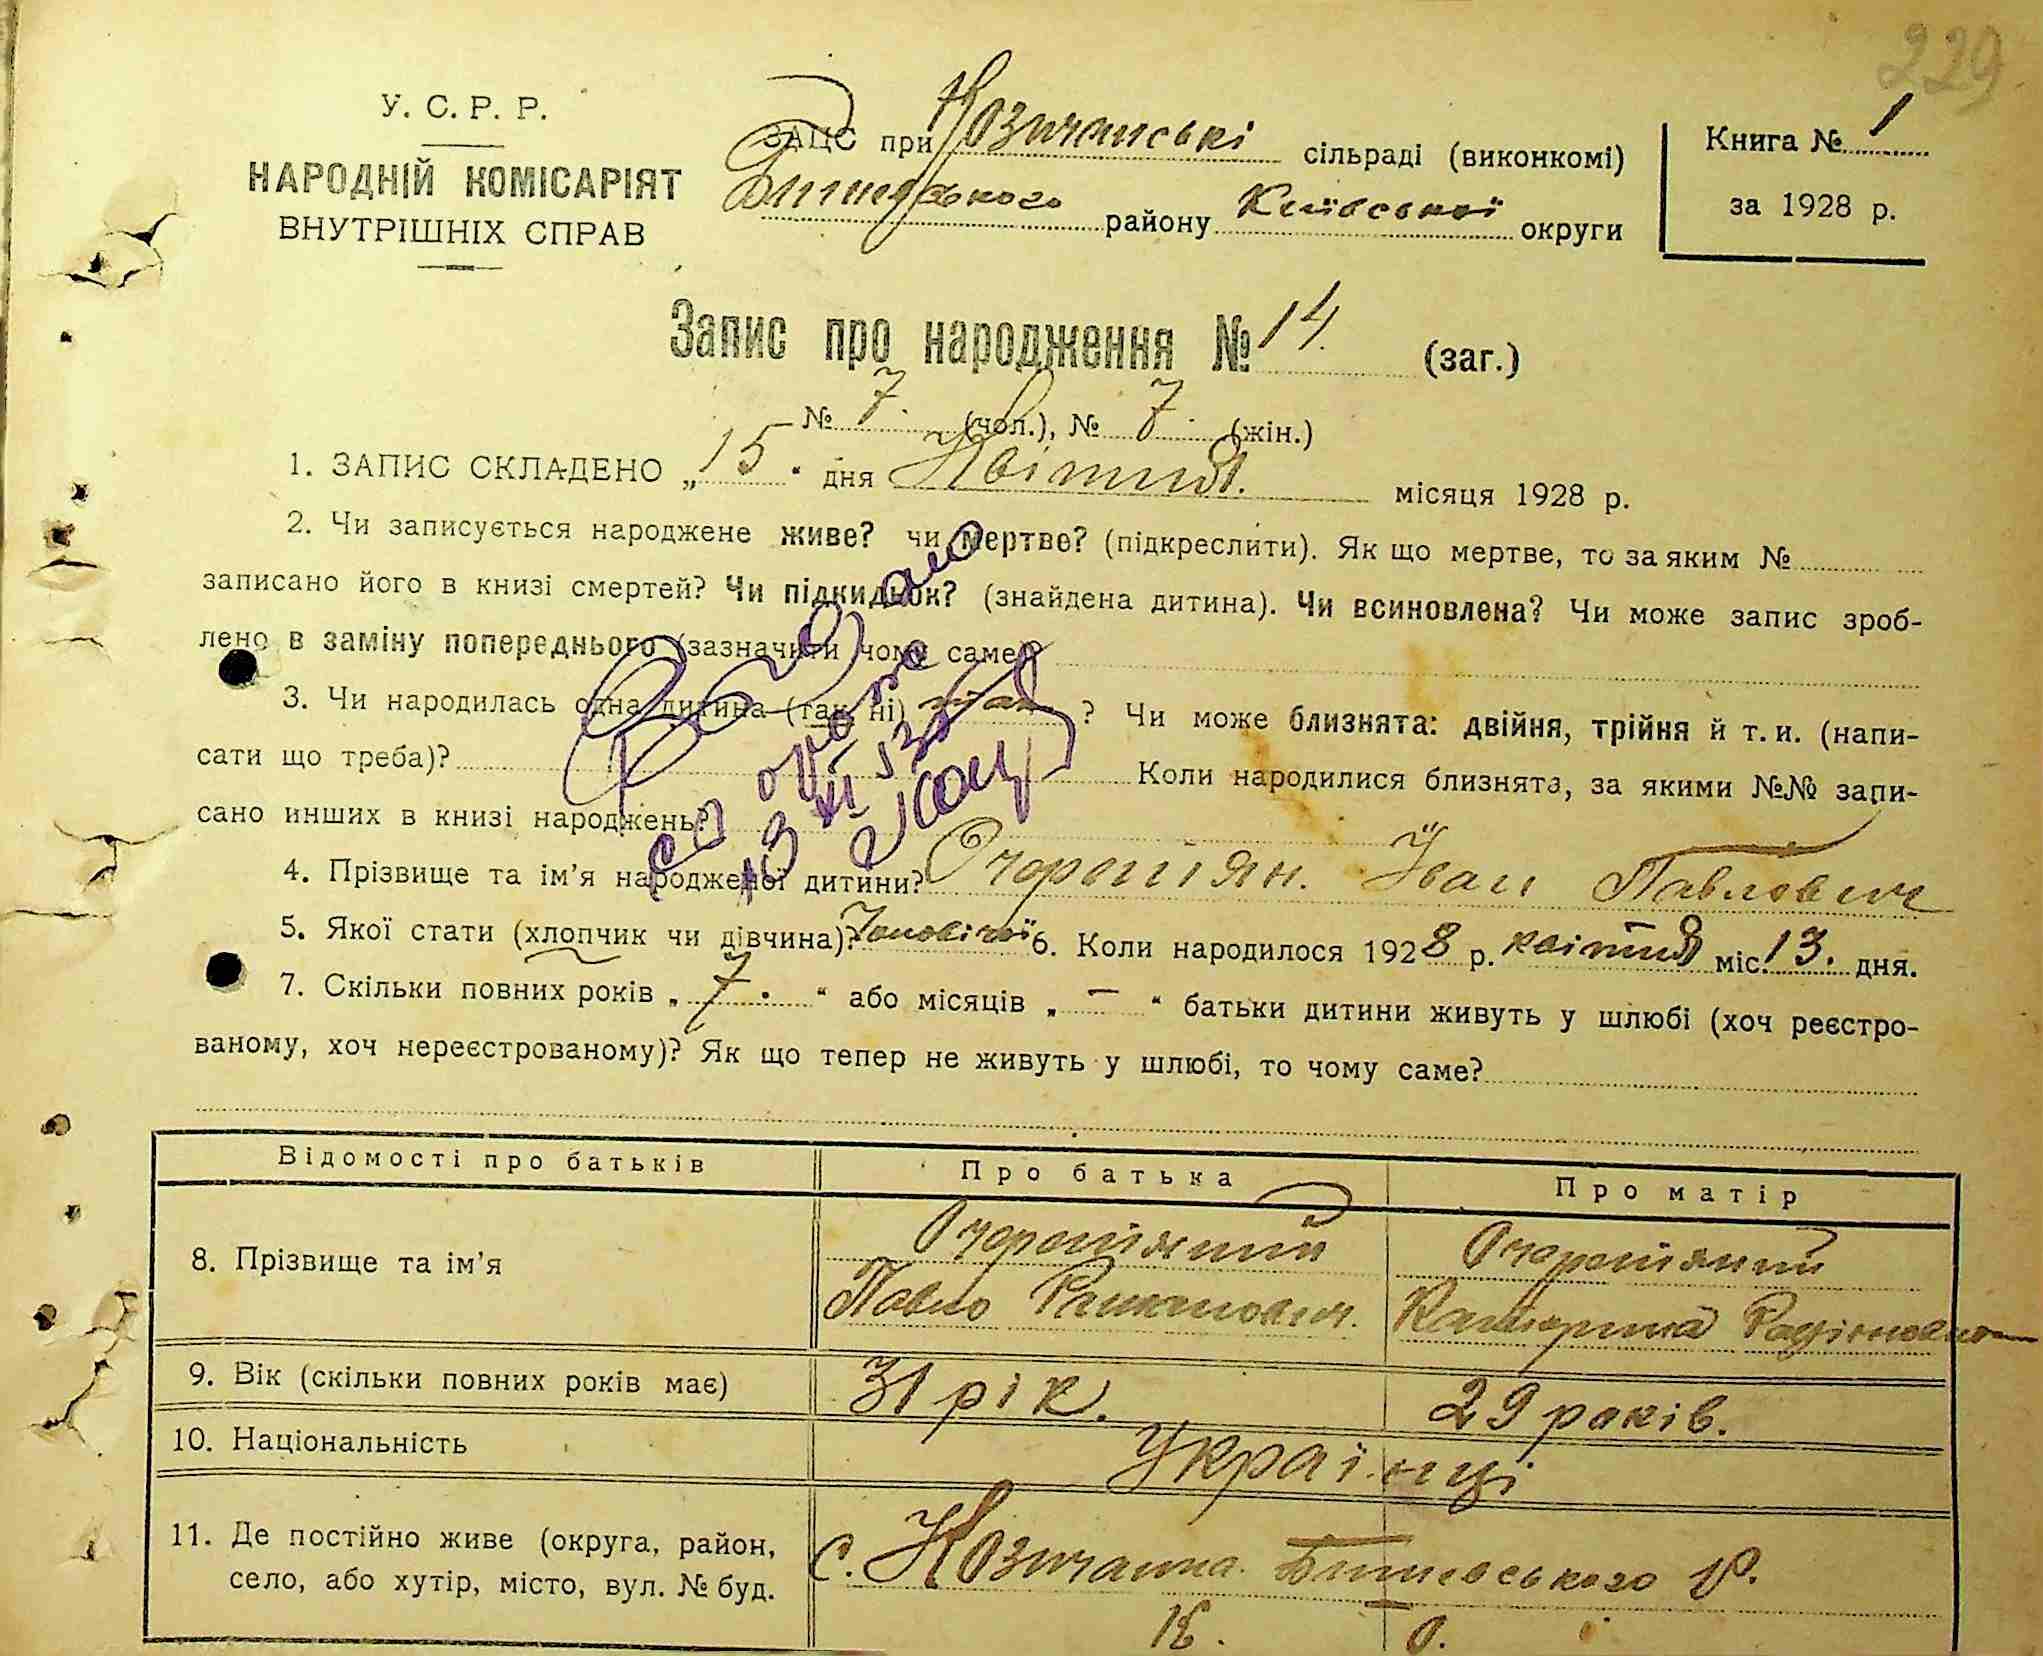 229
У. С. Р. Р.
НАРОДНІЙ КОМІСАРІЯТ
ВНУТРІШНІХ СПРАВ
ЗАЦС при Козичанські сільраді (виконкомі)
Бишевського району Київської округи
Книга № 1
за 1928 р.
Запис про народження № 14. (заг.)
№ 7. (чол.), № 7. (жін.)
1. ЗАПИС СКЛАДЕНО „15“ дня Квітня. місяця 1928 р.
2. Чи записується народжене живе? чи мертве? (підкреслити). Як що мертве, то за яким №
записано його в книзі смертей? Чи підкидьок? (знайдена дитина). Чи всиновлена? Чи може запис зроб-
лено в заміну попереднього (зазначити чому саме?
3. Чи народилась одна дитина (так, ні) так ? Чи може близнята: двійня, трійня й т. и. (напи-
сати що треба)? Коли народилися близнята, за якими №№ запи-
сано инших в книзі народжень?
4. Прізвище та ім’я народженої дитини? Очеретян. Іван Павлович
5. Якої стати (хлопчик чи дівчина)? Чоловічої 6. Коли народилося 1928 р. квітня міс. 13. дня.
7. Скільки повних років „ 7. “ або місяців „ – “ батьки дитини живуть у шлюбі (хоч реєстро-
ваному, хоч нереєстрованому)? Як що тепер не живуть у шлюбі, то чому саме?
Відомості про батьків Про батька Про матір
8. Прізвище та ім’я
Очеретяний Очеретяний
Павло Романович. Катерина Радіоновна
9. Вік (скільки повних років має) 31 рік. 29 років.
10. Національність Українці
11. Де постійно живе (округа, район,
село, або хутір, місто, вул. № буд.
с. Козичанка. Бишевського р.
К. О.